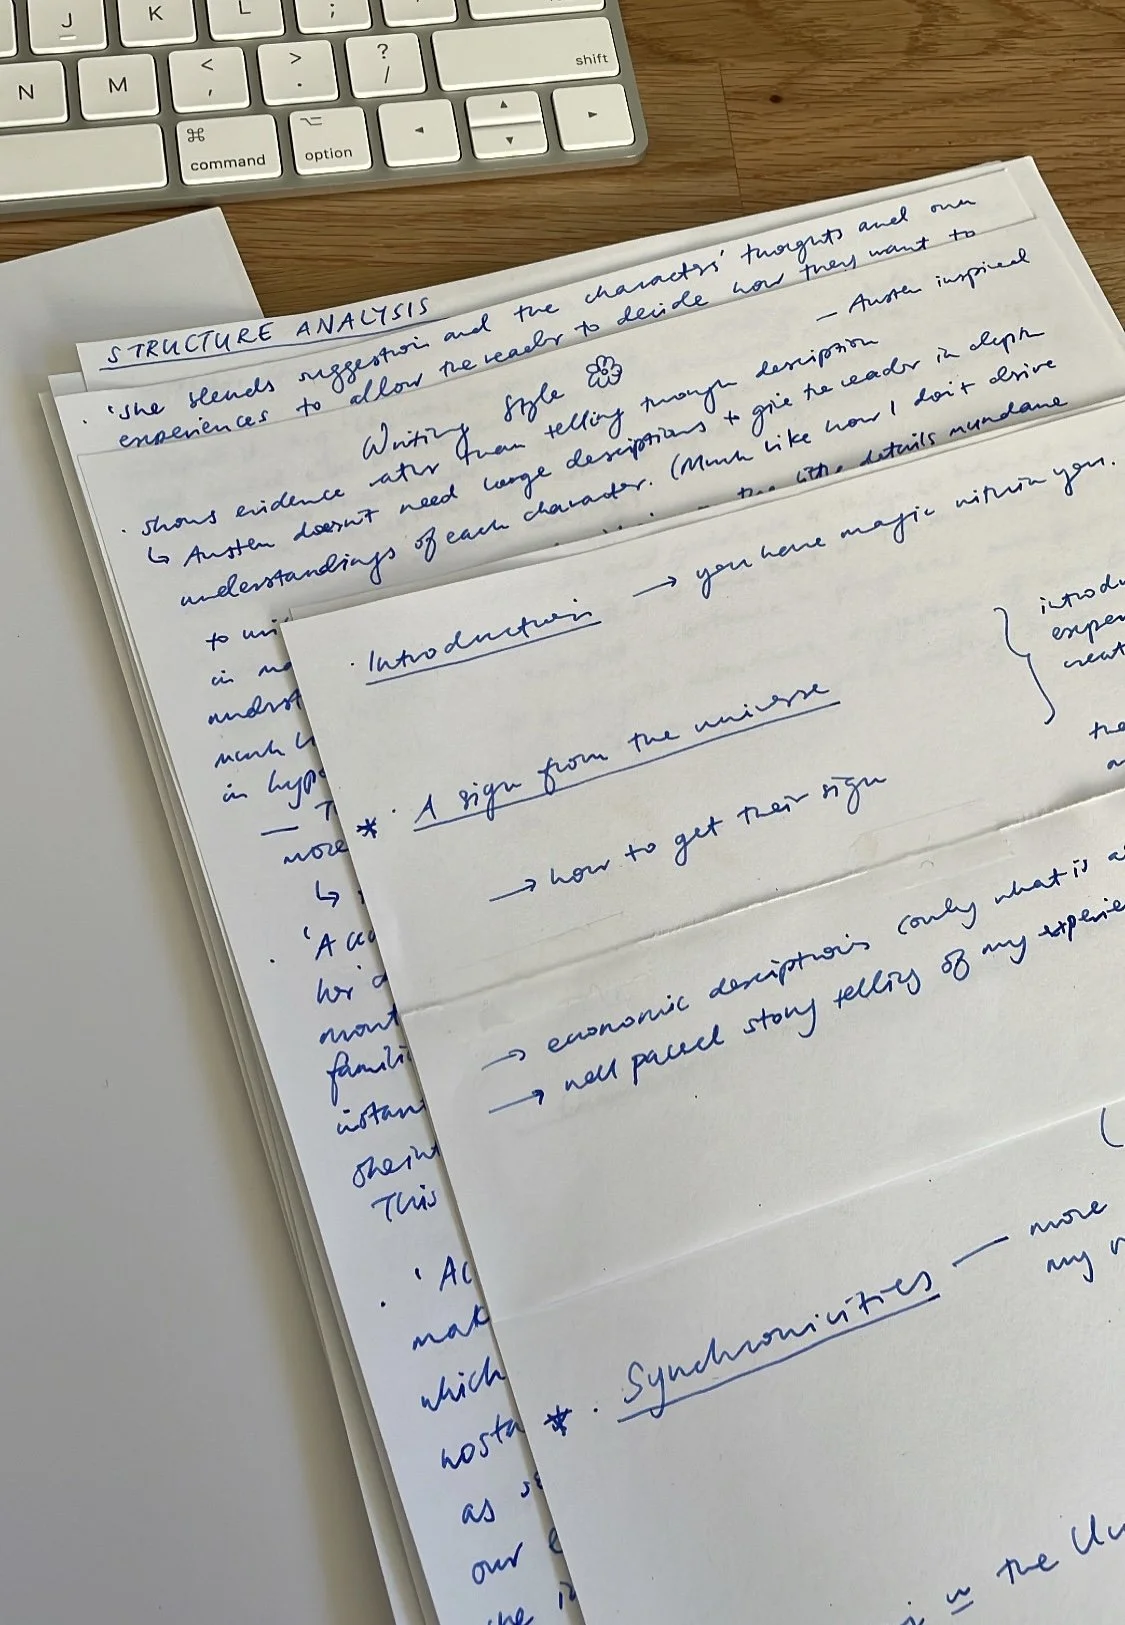 J K L ;
N M < , > . ? / shift
⌘ command ⌥ option
STRUCTURE ANALYSIS
'She blends suggestion and the characters' thoughts and own
experiences to allow the reader to decide how they want to
Writing Style
— Austen inspired
· shows evidence rather than telling through description
↳ Austen doesn't need large descriptions to give the reader in depth
understandings of each character. (Much like how I don't
the little details mundane
to
in
much
in
— T
more
↳
· 'A
her
mont
famili
instan
This
· 'Ac
mak
which
nosta
as se
our
she
· Introduction → you have magic within you.
introdu
exper
creat
* · A sign from the universe
the
→ how to get their sign
→ economic descriptions (only what is
→ well paced story telling of my experie
(
* · Synchronicities — more
my
in the Un